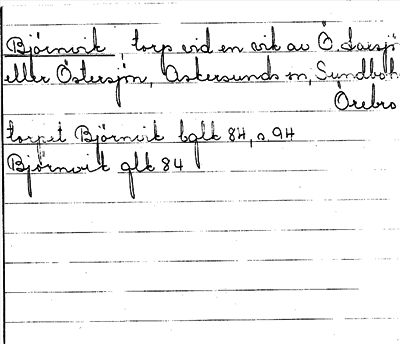 Björnvik, torp vid en vik av Ö.
eller Östersjön, Askersunds sn, Sundboh.
Örebro
torpet Björnvik bglk 84, o. 94
Björnvik glk 84